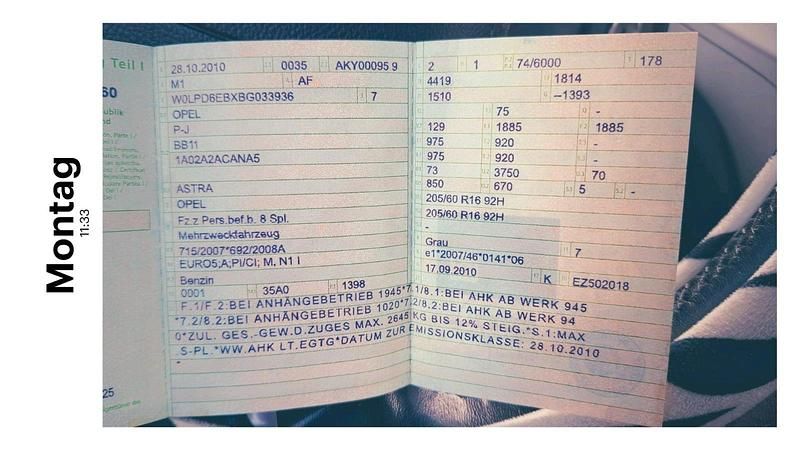 Montag
11:33
Teil I
60
25
28.10.2010 0035 AKY00095 9
M1 AF
W0LPD6EBXBG033936 7
OPEL
P-J
BB11
1A02A2ACANA5
ASTRA
OPEL
Fz.z Pers.bef.b. 8 Spl.
Mehrzweckfahrzeug
715/2007*692/2008A
EURO5;A;PI/CI; M, N1 I
Benzin
0001 35A0 1398
2 1 74/6000 178
4419 1814
1510 –1393
75 -
129 1885 1885
975 920 -
975 920 -
73 3750 70
850 670 5 -
205/60 R16 92H
205/60 R16 92H
-
Grau 7
e1*2007/46*0141*06
17.09.2010 K EZ502018
F.1/F.2:BEI ANHÄNGEBETRIEB 1945*7.1/8.1:BEI AHK AB WERK 945
*7.2/8.2:BEI ANHÄNGEBETRIEB 1020*7.2/8.2:BEI AHK AB WERK 94
0*ZUL. GES.-GEW.D.ZUGES MAX. 2645 KG BIS 12% STEIG.*S.1:MAX
.S-PL.*WW.AHK LT.EGTG*DATUM ZUR EMISSIONSKLASSE: 28.10.2010
-